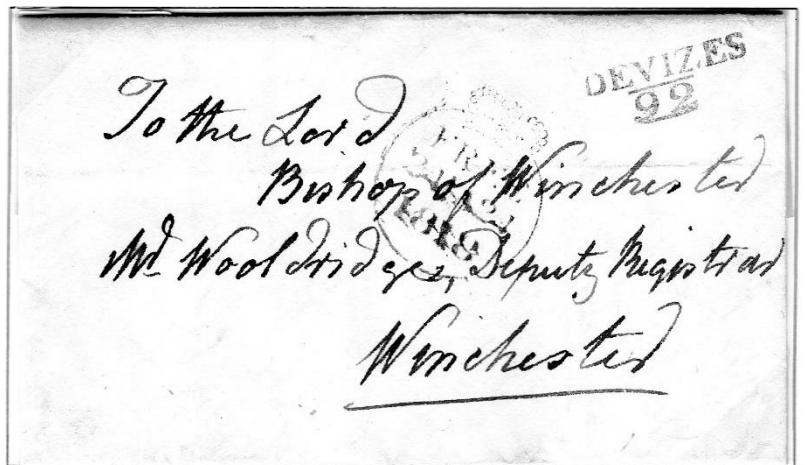 DEVIZES
92
To the Lord
Bishop of Winchester
FREE
1818
Mr Wooldridge, Deputy Registrar
Winchester